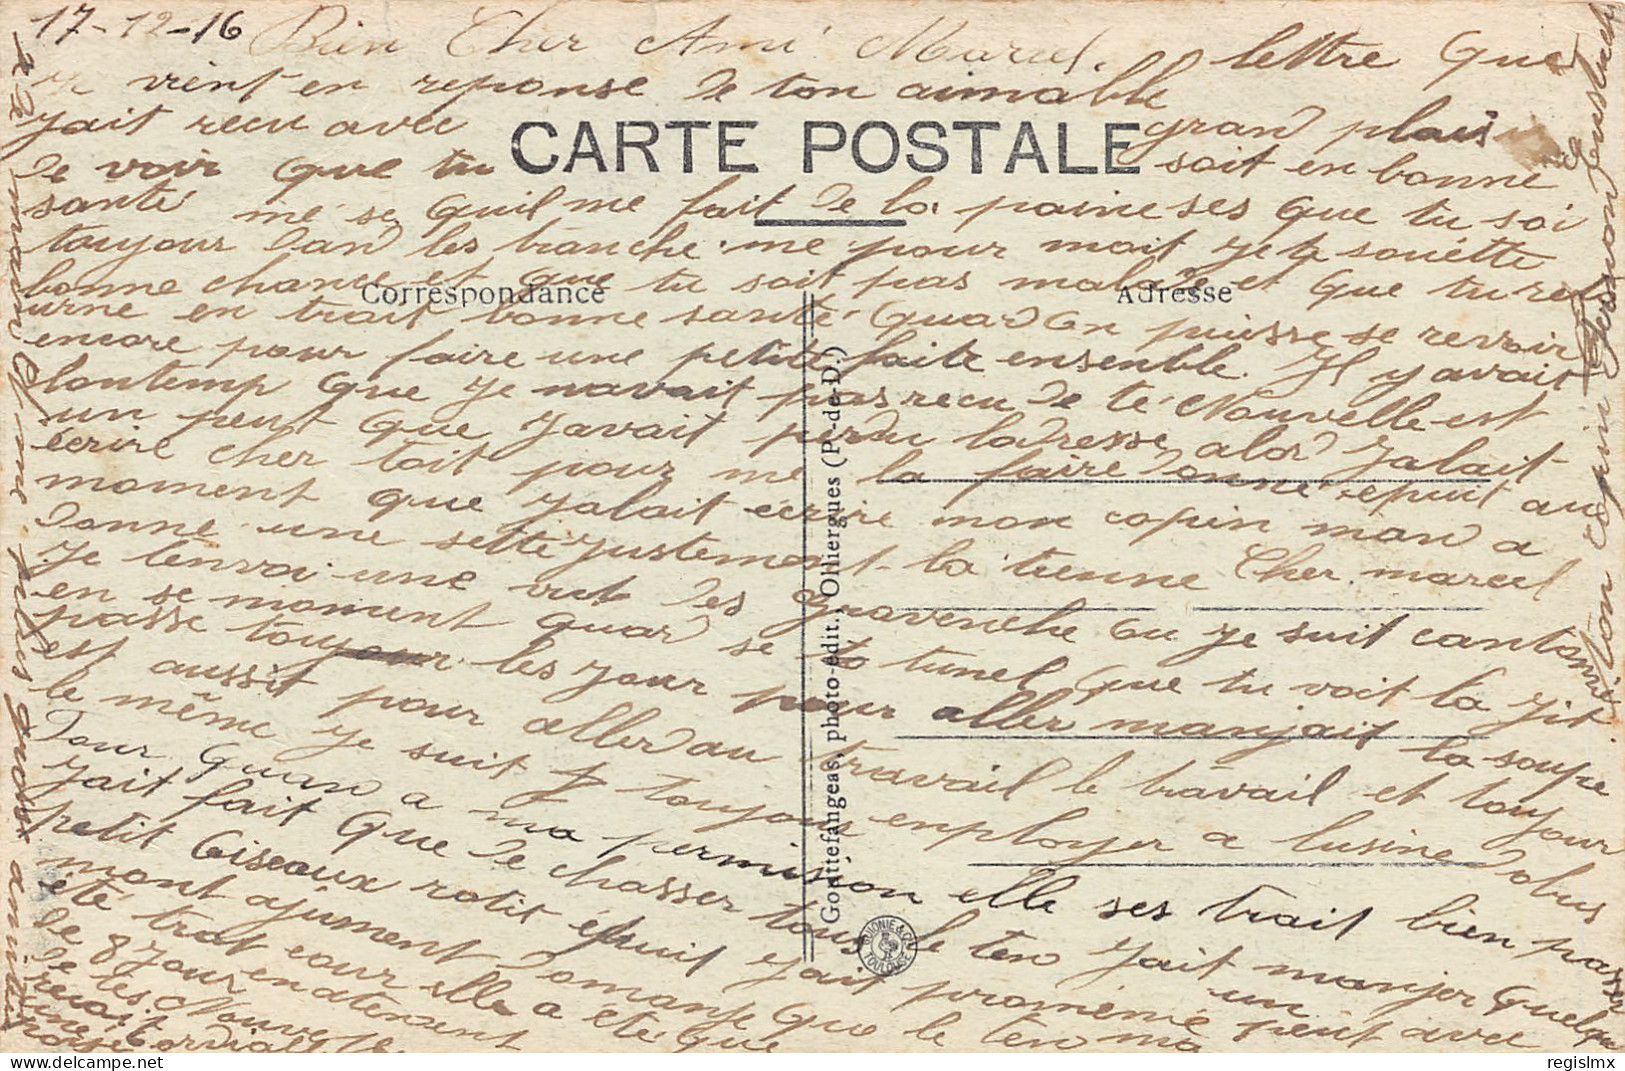 17-12-16 Bien Cher Ami Marcel.
je vient en reponse de ton aimable lettre que
jait recu avec gran plais
de voir que tu soit en bonne
santé mé se quil me fait de la paine ses que tu soi
toujour dan les tranche. me pour moit je te souette
bonne chance et que tu soit pas malade et que tu re
urne en trait bonne santé quand on puisse se revoir
encore pour faire une petite faite ensemble. Il y avait
lontemp que je navait pas recu de té Nouvelle est
un peut que javait perdu ladresse alor jalait
écrire cher toit pour me la faire donné epuit au
moment que jalait écrire mon copin man a
donné une sette justement la tienne Cher marcel
je tenvoi une vue des gravenche ou je suit cantonné
en se momment quar se to tunel que tu voit la jit
passe toujour les jour pour aller manjait la soupe
est aussit pour aller au travail le travail et toujour
le même je suit toujour enployer a lusine dobus
Pour quand a ma permision elle ses trait bien passer
jait fait que de chasser tous le ten jait manjer quelque
petit oiseaux rotit épuit jait promémé un peut avec
mont ajument domange que le ten ma
été trot cour elle a été que
de 8 jour en atenent
de tes Nouvelle
recoit
une cordiall
CARTE POSTALE
Correspondance
Adresse
Gouttefangeas, photo-édit., Olliergues (P.-de-D.)
TOULOUSE
Ton copin
x de main
plus gros amitiés
regislmx